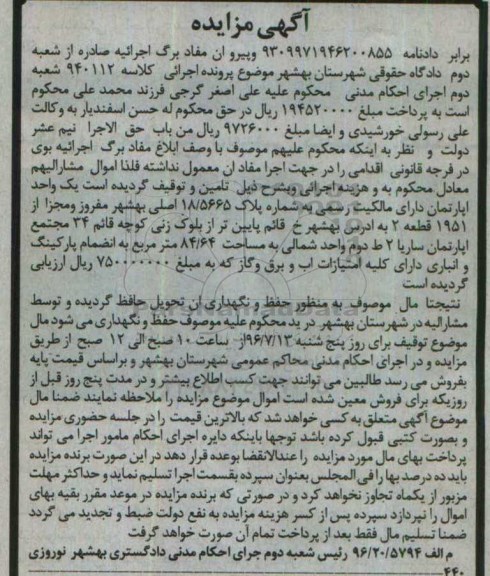 آگهی مزایده
برابر دادنامه ۹۳۰۹۹۷۱۹۴۶۲۰۰۸۵۵ وپیرو ان مفاد برگ اجرائیه صادره از شعبه
دوم دادگاه حقوقی شهرستان بهشهر موضوع پرونده اجرائی کلاسه ۹۴۰۱۱۲ شعبه
دوم اجرای احکام مدنی محکوم علیه علی اصغر گرجی فرزند محمد علی محکوم
است به پرداخت مبلغ ۱۹۴۵۲۰۰۰۰ ریال در حق محکوم له حسن اسفندیار به وکالت
علی رسولی خورشیدی و ایضا مبلغ ۹۷۲۶۰۰۰ ریال من باب حق الاجرا نیم عشر
دولت و نظر به اینکه محکوم علیهم موصوف با وصف ابلاغ مفاد برگ اجرائیه بوی
در فرجه قانونی اقدامی را در جهت اجرا مفاد ان معمول نداشته فلذا اموال مشارالیهم
معادل محکوم به و هزینه اجرائی وبشرح ذیل تامین و توقیف گردیده است یک واحد
اپارتمان دارای مالکیت رسمی به شماره پلاک ۱۸/۵۶۶۵ اصلی بهشهر مفروز ومجزا از
۱۹۵۱ قطعه ۲ به ادرس بهشهر خ قائم پایین تر از بلوک زنی کوچه قائم ۳۴ مجتمع
اپارتمان ساریا ۲ ط دوم واحد شمالی به مساحت ۸۴/۶۴ متر مربع به انضمام پارکینگ
و انباری دارای کلیه امتیازات اب و برق وگاز که به مبلغ ۷۵۰۰۰۰۰۰۰ ریال ارزیابی
گردیده است
نتیجتا مال موصوف به منظور حفظ و نگهداری آن تحویل حافظ گردیده و توسط
مشارالیه در شهرستان بهشهر در ید محکوم علیه موصوف حفظ و نگهداری می شود مال
موضوع توقیف برای روز پنج شنبه ۹۶/۷/۱۳از ساعت ۱۰ صبح الی ۱۲ صبح از طریق
مزایده و در اجرای احکام مدنی محاکم عمومی شهرستان بهشهر و براساس قیمت پایه
بفروش می رسد طالبین می توانند جهت کسب اطلاع بیشتر و در مدت پنج روز قبل از
روزیکه برای فروش معین شده است اموال موضوع مزایده را ملاحظه نمایند ضمنا مال
موضوع آگهی متعلق به کسی خواهد شد که بالاترین قیمت را در جلسه حضوری مزایده
و بصورت کتبی قبول کرده باشد توجها باینکه دایره اجرای احکام مامور اجرا می تواند
پرداخت بهای مال مورد مزایده را عندالانقضا بوعده قرار دهد در این صورت برنده مزایده
باید ده درصد بها را فی المجلس بعنوان سپرده بقسمت اجرا تسلیم نماید و حداکثر مهلت
مزبور از یکماه تجاوز نخواهد کرد و در صورتی که برنده مزایده در موعد مقرر بقیه بهای
اموال را نپردازد سپرده پس از کسر هزینه مزایده به نفع دولت ضبط و تجدید می گردد
ضمنا تسلیم مال فقط بعد از پرداخت تمام آن صورت خواهد گرفت
م الف ۹۶/۲۰/۵۷۹۴ رئیس شعبه دوم جرای احکام مدنی دادگستری بهشهر نوروزی
۴۴۰